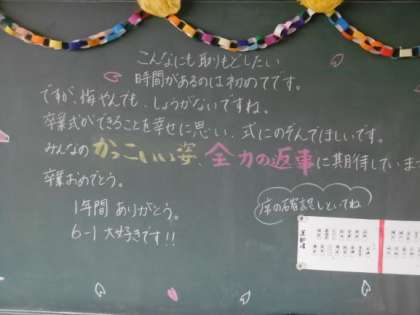 こんなにも取りもどしたい
時間があるのは初めてです。
ですが、悔やんでも、しょうがないですね。
卒業式ができることを幸せに思い、式にのぞんでほしいです。
みんなのかっこいい姿、全力の返事に期待していま
卒業おめでとう。
1年間 ありがとう。
6-1 大好きです!!
席の確認しといてね